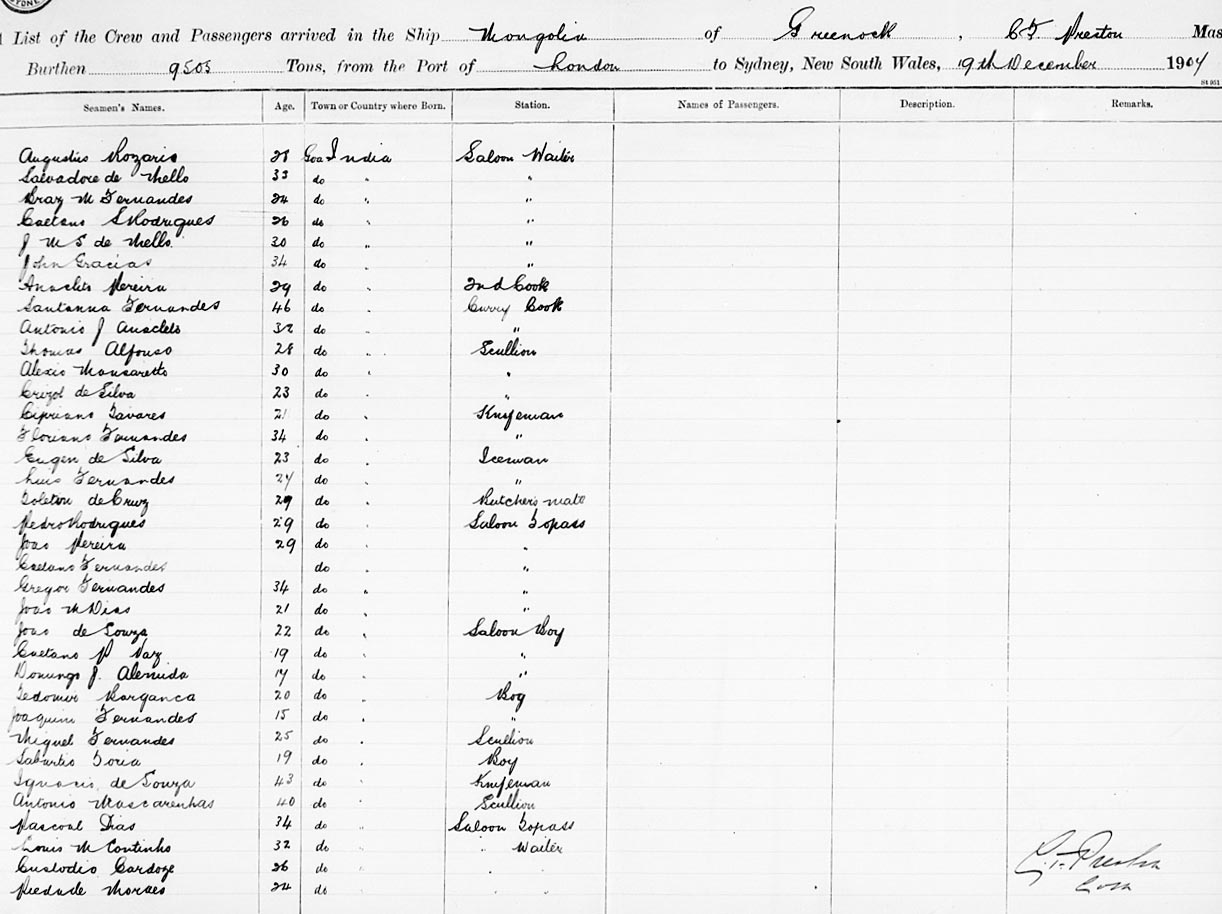 SYDNEY
List of the Crew and Passengers arrived in the Ship Mongolia of Greenock, C.F. Preston Mas
Burthen 9505 Tons, from the Port of London to Sydney, New South Wales, 19th December 1904
Seamen's Names. Age. Town or Country where Born. Station. Names of Passengers. Description. Remarks.
Augustus Rozario 28 Goa India Saloon Waiter
Salvadore de Mello 33 do " "
Braz M Fernandes 24 do " "
Caetano S Rodrigues 26 do " "
J M S de Mello 30 do " "
John Gracias 34 do "
Anacleto Pereira 29 do " 2nd Cook
Santanna Fernandes 46 do " Curry Cook
Antonio J Anacleto 32 do " "
Thomas Alfonso 28 do " Scullion
Alexis Monsaretto 30 do " "
de Silva 23 do " "
Cipriano Tavares 21 do " Knifeman
Floriano Fernandes 34 do " "
Eugen de Silva 23 do " Iceman
Luis Fernandes 24 do " "
de Cruz 29 do " Butcher's mate
Pedro Rodrigues 29 do " Saloon Topass
Joao Pereira 29 do " "
Caetano Fernandes do " "
Gregor Fernandes 34 do " "
Joao M Dias 21 do " "
Joao de Souza 22 do " Saloon Boy
Caetano P Vaz 19 do " "
Domingo J. Alemida 17 do " "
Barganca 20 do " Boy
Joaquim Fernandes 15 do " "
Miguel Fernandes 25 do " Scullion
19 do " Boy
Ignacio de Souza 43 do " Knifeman
Antonio Mascarenhas 40 do " Scullion
Pascoal Dias 34 do " Saloon Topass
Louis M Continho 32 do " " Waiter
Custodio Cardoze 26 do " "
Piedade Moraes 24 do " "
C.F. Preston
Com